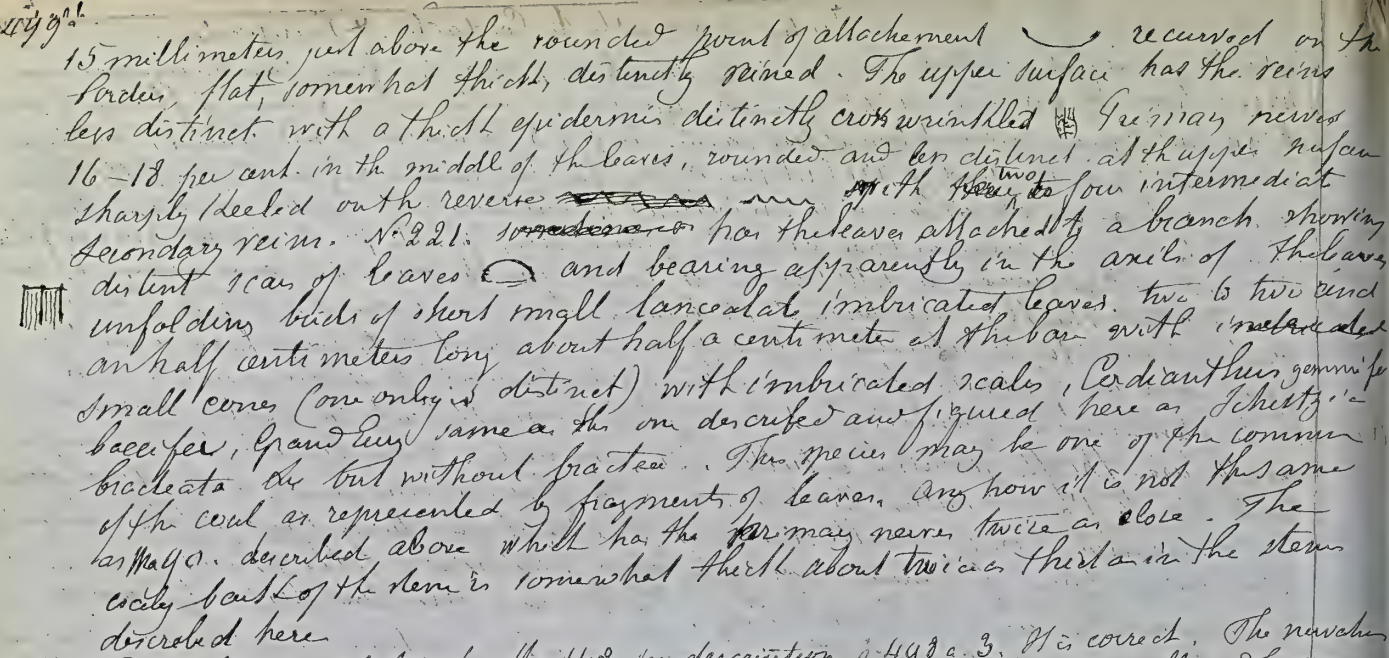 15 millimeters just above the rounded point of attachement recurved on the
border, flat, somewhat thick, distinctly veined. The upper surface has the veins
less distinct with a thick epidermis distinctly cross wrinkled Primary nerves
16-18 per cent. in the middle of the leaves, rounded and less distinct at the upper surface
sharply keeled on the reverse with two to four intermediate
secondary veins. No 221. has the leaves attached to a branch showing
distinct scars of leaves and bearing apparently in the axils of the leaves
unfolding buds of short small lanceolate imbricated leaves two to two and
an half centimeters long about half a centimeter at the base with
small cones (one only is distinct) with imbricated scales, Cordianthus gemmifer
baccifer, Grand'Eury same as the one described and figured here as
bracteata but without bractea. This species may be one of the common
of the coal as represented by fragments of leaves. Any how it is not the same
as described above which has the primary nerves twice as close. The
coaly bark of the stem is somewhat thick about twice as thick as in the stems
described here
description 498a. 3. It is correct. The